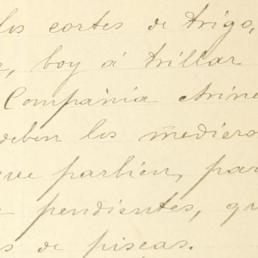 los cortes de trigo,
, boy á trillar
Compañia
deben los medieros
parbien, par
pendientes, qu
s de piseas.